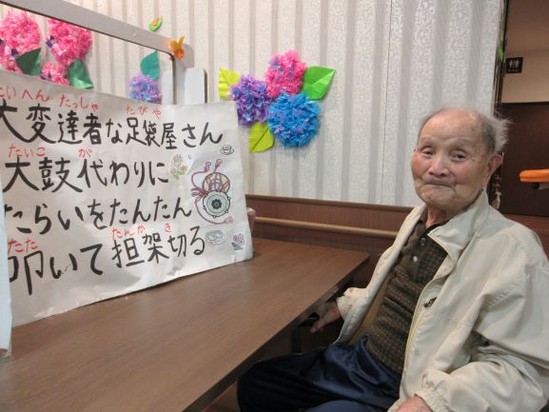 たいへん たっしゃ たびや
大変達者な足袋屋さん
たいこ が
太鼓代わりに
たらいをたんたん
たた たんか き
叩いて担架切る